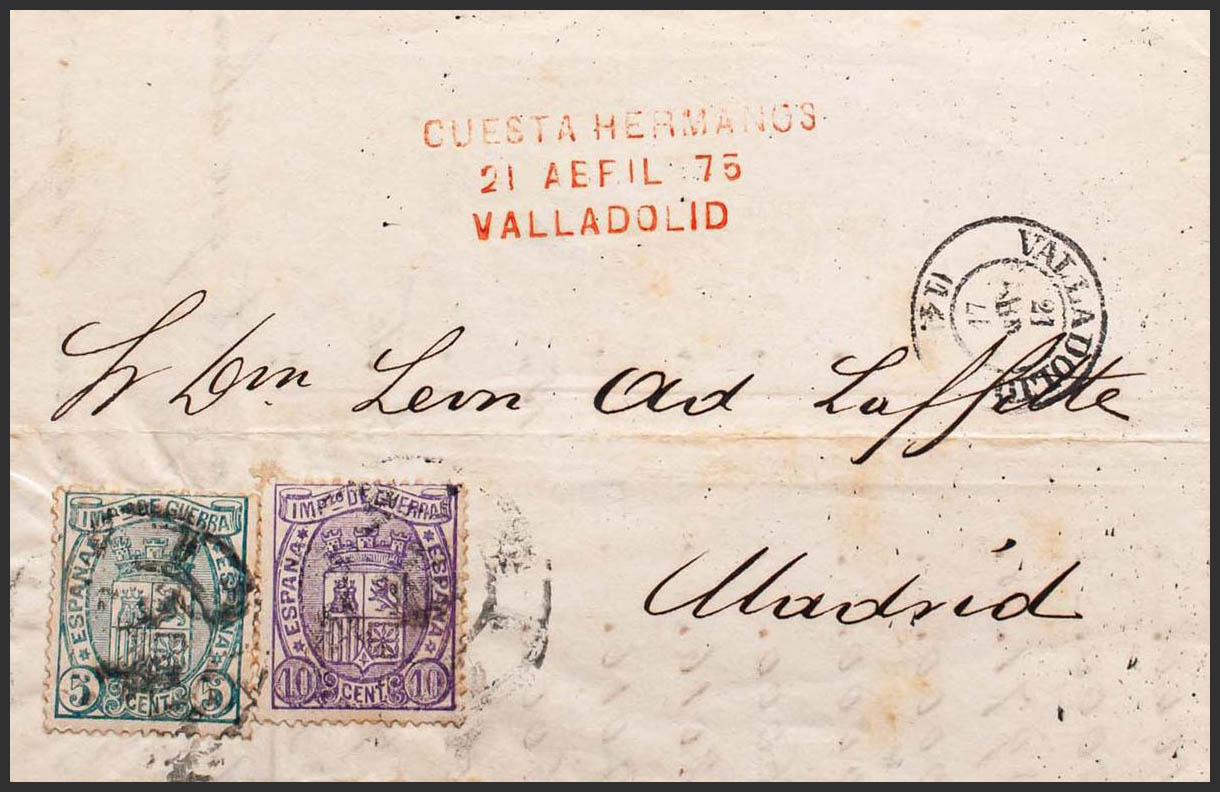 CUESTA HERMANOS
21 ABRIL 75
VALLADOLID
VALLADOLID
21
ABR
(14)
Sr Dn Leon Ad Laffitte
Madrid
IMPto DE GUERRA
ESPAÑA
ESPAÑA
5 CENT. 5
IMPto DE GUERRA
ESPAÑA
ESPAÑA
10 CENT. 10